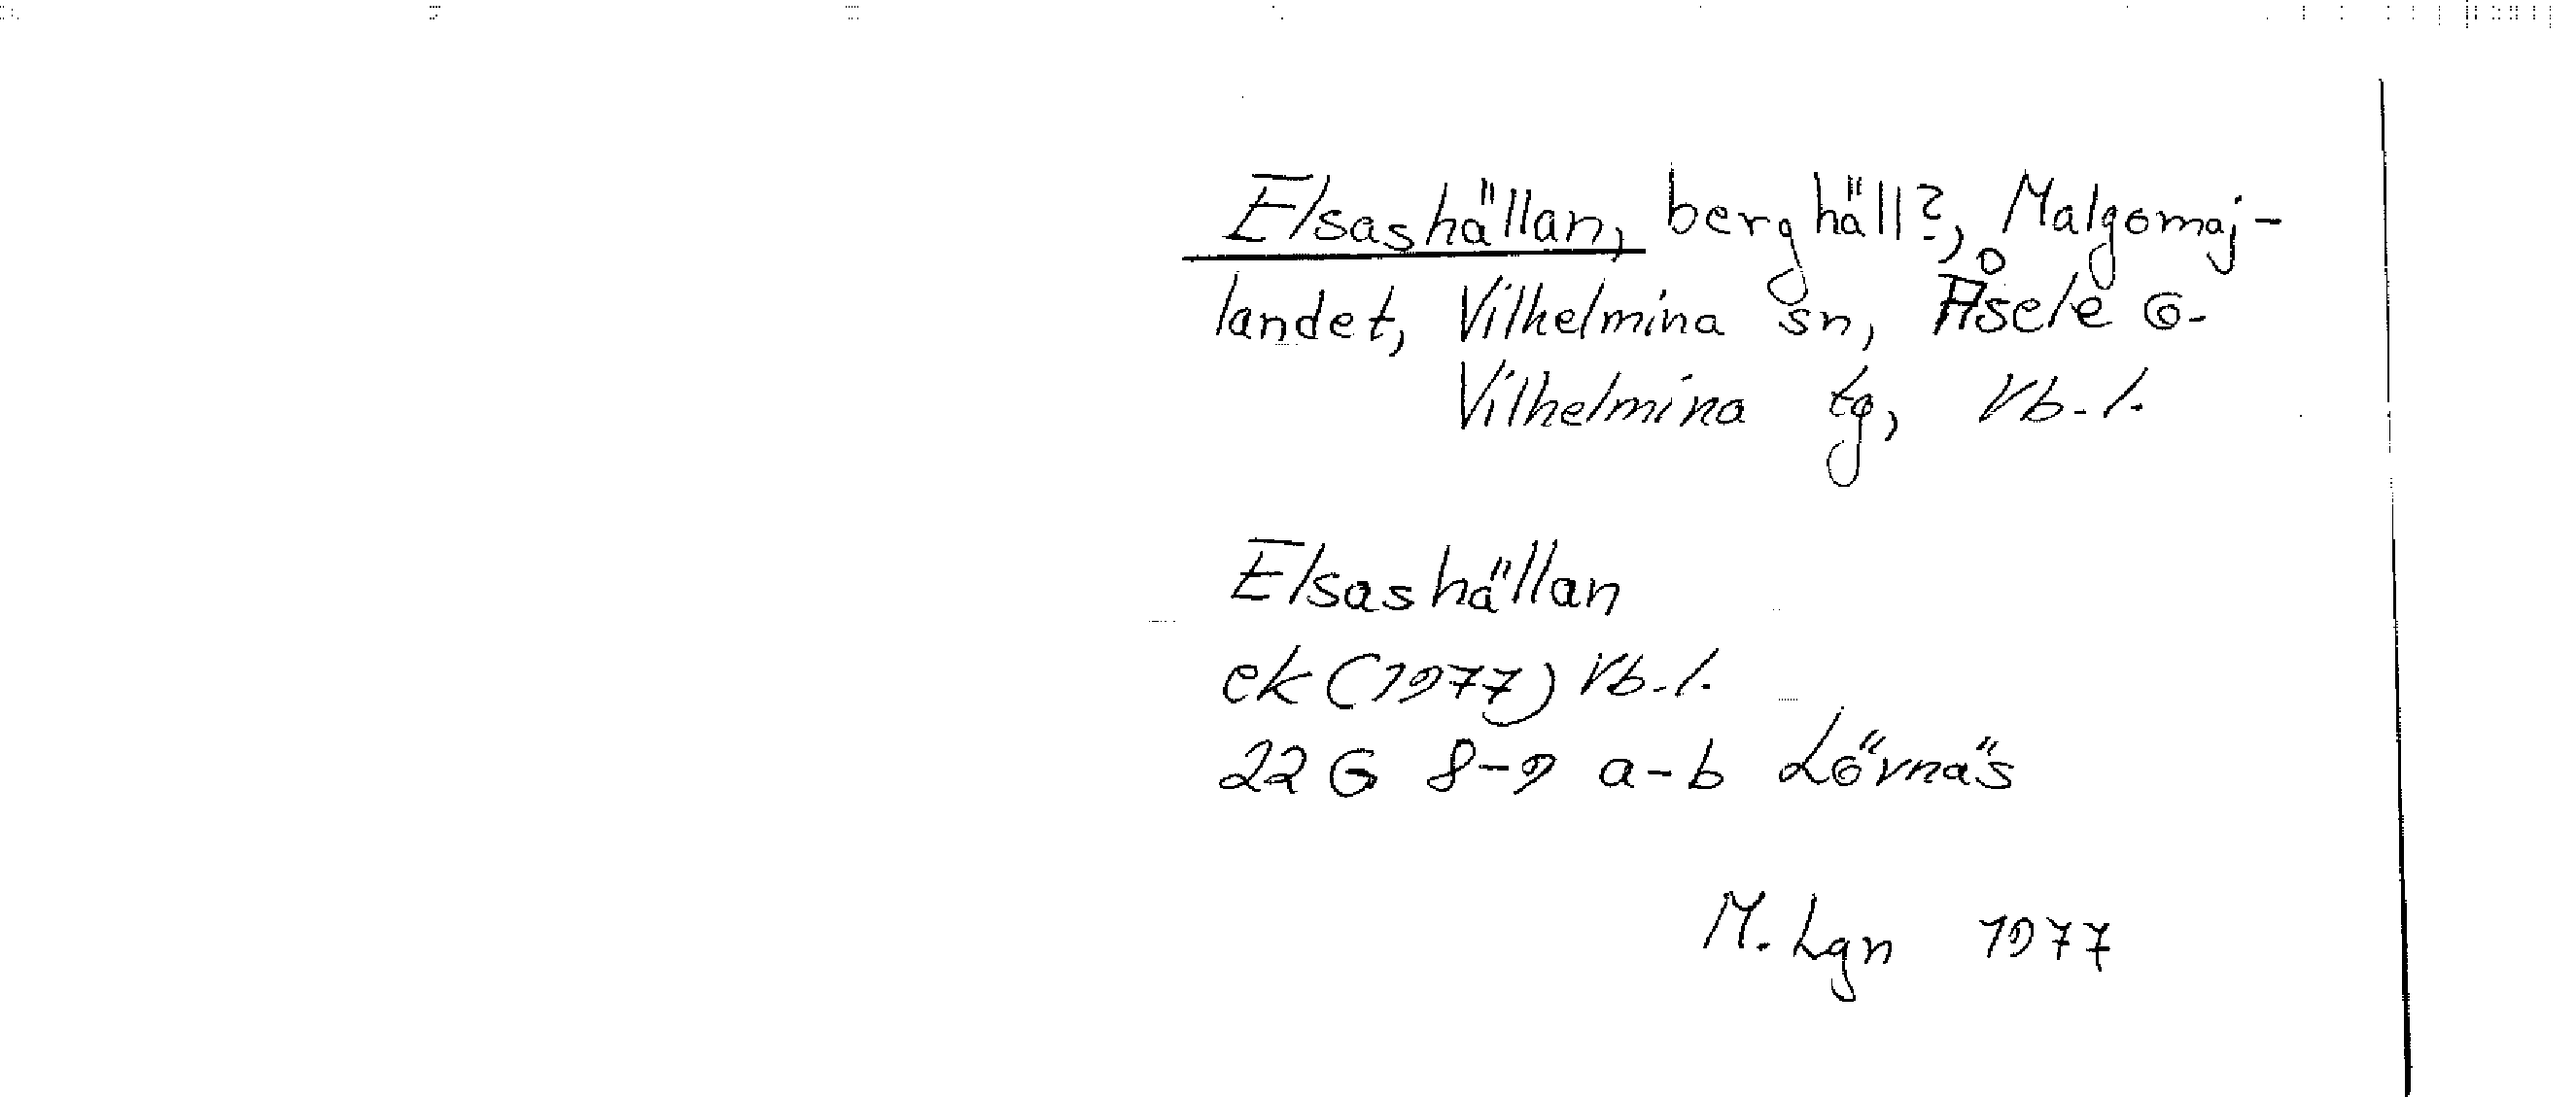 Elsashällan, berghäll?, Malgomaj-
landet, Vilhelmina sn, Åsele o.
Vilhelmina tg, Vb. l.
Elsashällan
ek (1977) Vb. l.
22 G 8-9 a-b Lövnäs
M. Lgn 1977